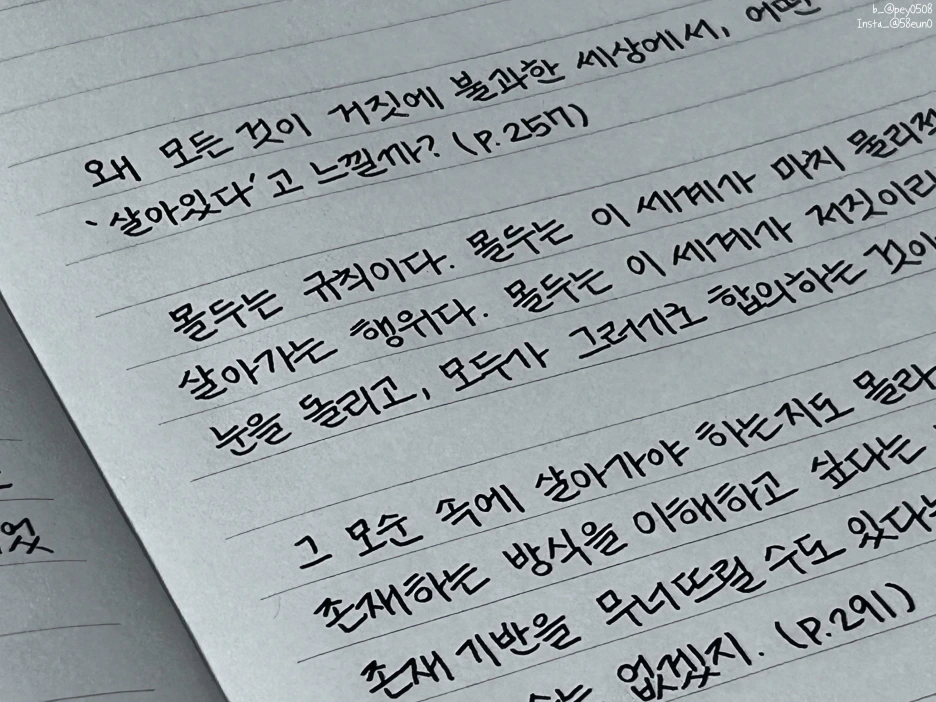 b_@pey0508
Insta_@58eun0
왜 모든 것이 거짓에 불과한 세상에서, 어떤
'살아있다'고 느낄까? (P.257)
몰두는 규칙이다. 몰두는 이 세계가 마치 물리적
살아가는 행위다. 몰두는 이 세계가 거짓이라
눈을 돌리고, 모두가 그러기로 합의하는 것이
그 모순 속에 살아가야 하는지도 몰라
존재하는 방식을 이해하고 싶다는
존재 기반을 무너뜨릴 수도 있다는
없겠지. (P.291)
었